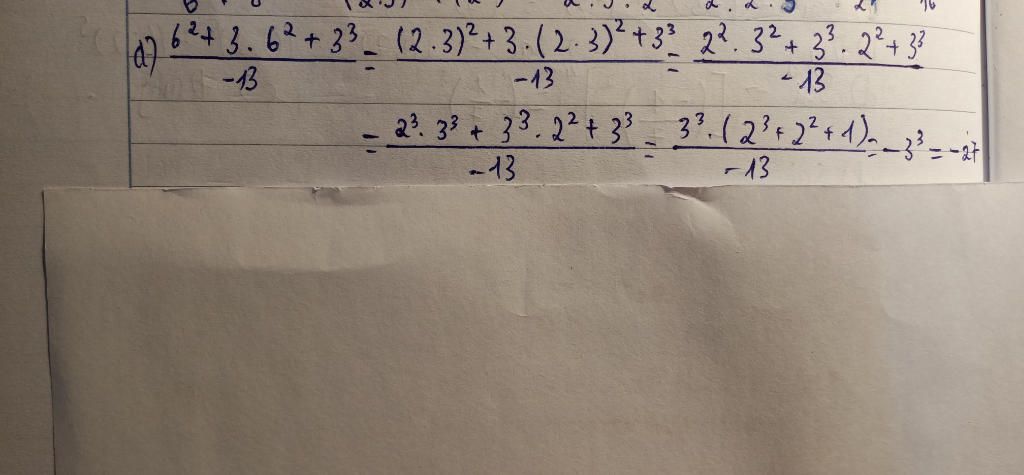 d) (6² + 3 . 6² + 3³)/(-13) = ((2.3)² + 3 . (2.3)² + 3³)/(-13) = (2² . 3² + 3³ . 2² + 3³)/(-13)
= (2³ . 3³ + 3³ . 2² + 3³)/(-13) = (3³ . (2³ + 2² + 1))/(-13) = -3³ = -27